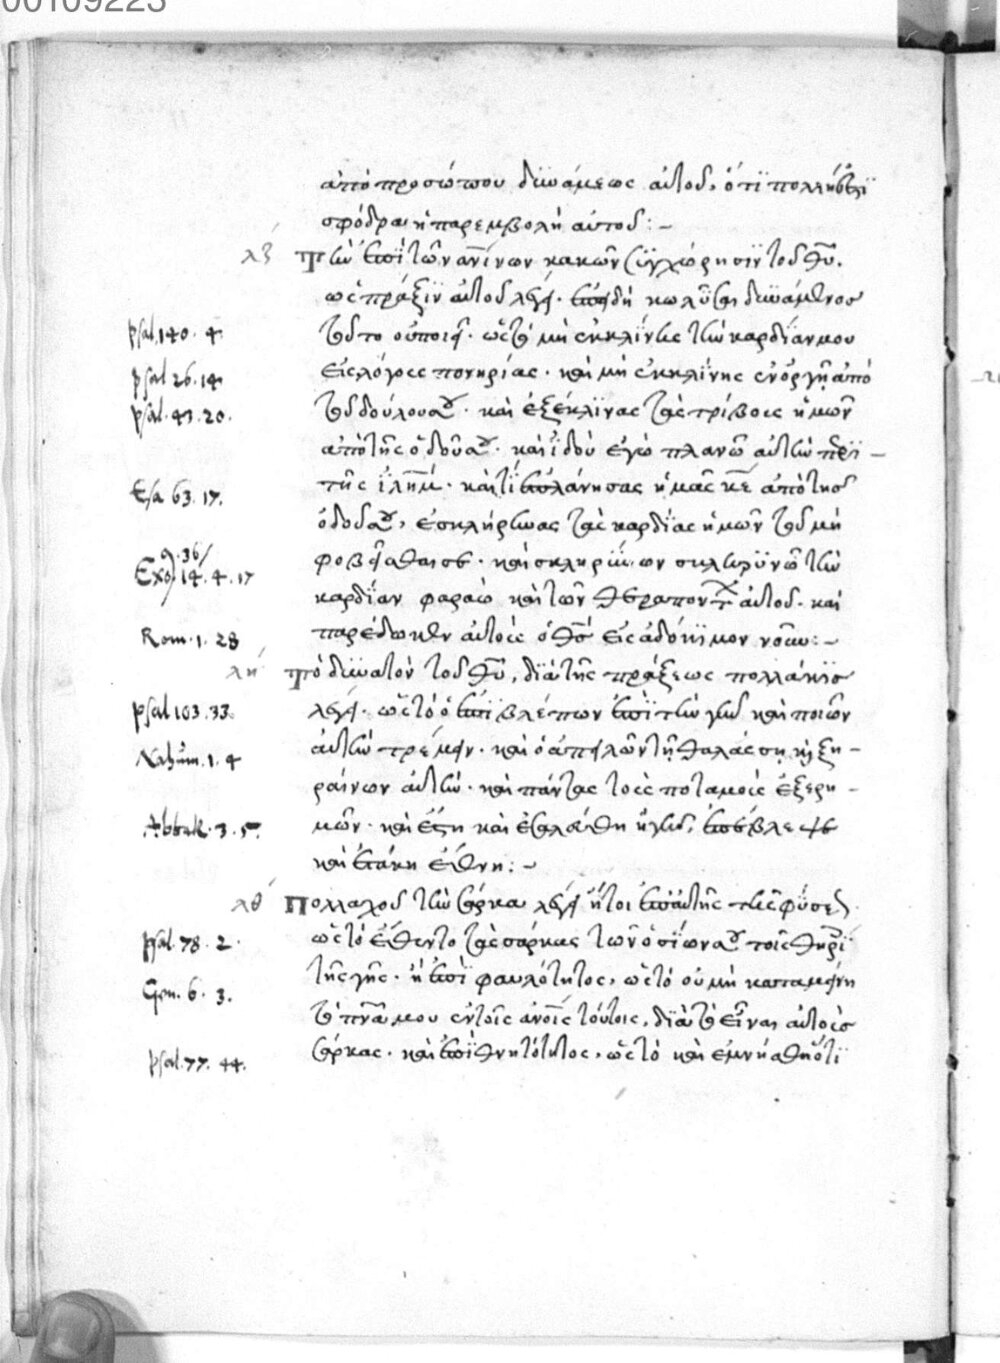 00109223
ἀπὸ προσώπου δυνάμεως αὐτοῦ, ὅτι πολλή ἐστι
σφόδρα ἡ παρεμβολὴ αὐτοῦ:-
λζ Τὴν ἐπὶ τῶν ἀνίνων κακῶν συγχώρησιν τοῦ θυ,
ὡς πρᾶξιν αὐτοῦ λέγει· ἐπειδὴ κωλῦσαι δυνάμενος
psal. 140. 4 τοῦτο οὐ ποιεῖ· ὡς τὸ μὴ ἐκκλίνῃς τὴν καρδίαν μου
psal 26. 14 εἰς λόγους πονηρίας· καὶ μὴ ἐκκλίνῃς ἐν ὀργῇ ἀπὸ
psal. 43. 20. τοῦ δούλου σου· καὶ ἐξέκλινας τὰς τρίβους ἡμῶν
ἀπὸ τῆς ὁδοῦ σου· καὶ ἰδοὺ ἐγὼ πλανῶ αὐτὴν περὶ-
Esa 63. 17. τῆς ἰλημ· καὶ τί ἐπλάνησας ἡμᾶς κε ἀπὸ τῆς
ὁδοῦ σου, ἐσκλήρυνας τὰς καρδίας ἡμῶν τοῦ μὴ
Exo. 9. 36/ 14. 4. 17 φοβεῖσθαι σε· καὶ σκληρύνων σκληρυνῶ τὴν
καρδίαν φαραὼ καὶ τῶν θεραπόντων αὐτοῦ· καὶ
Rom. 1. 28 παρέδωκεν αὐτοὺς ὁ θς εἰς ἀδόκιμον νοῦν:-
λη Τὸ δυνατὸν τοῦ θυ, διὰ τῆς πράξεως πολλάκις
psal 103. 33. λέγει· ὡς τὸ ὁ ἐπιβλέπων ἐπὶ τὴν γῆν καὶ ποιῶν
Nahum. 1. 4 αὐτὴν τρέμειν· καὶ ὁ ἀπειλῶν τῇ θαλάσσῃ καὶ ξη-
ραίνων αὐτὴν· καὶ πάντας τοὺς ποταμοὺς ἐξερη-
Abbak. 3. 5. μῶν· καὶ ἔστη καὶ ἐσαλεύθη ἡ γῆ, ἐπέβλεψε
καὶ ἐτάκη ἔθνη:-
λθ Πολλαχοῦ τὴν σάρκα λέγει ἤτοι ἐπὶ αὐτῆς τῆς φύσεως.
psal. 78. 2. ὡς τὸ ἔθεντο τὰς σάρκας τῶν ὁσίων σου τοῖς θηρίοις
Gen. 6. 3. τῆς γῆς· ἢ ἐπὶ φαυλότητος, ὡς τὸ οὐ μὴ καταμείνῃ
τὸ πνᾶ μου ἐν τοῖς ἀνοις τούτοις, διὰ τὸ εἶναι αὐτοὺς
psal. 77. 44. σάρκας· καὶ ἐπὶ θνητότητος, ὡς τὸ καὶ ἐμνήσθη ὅτι